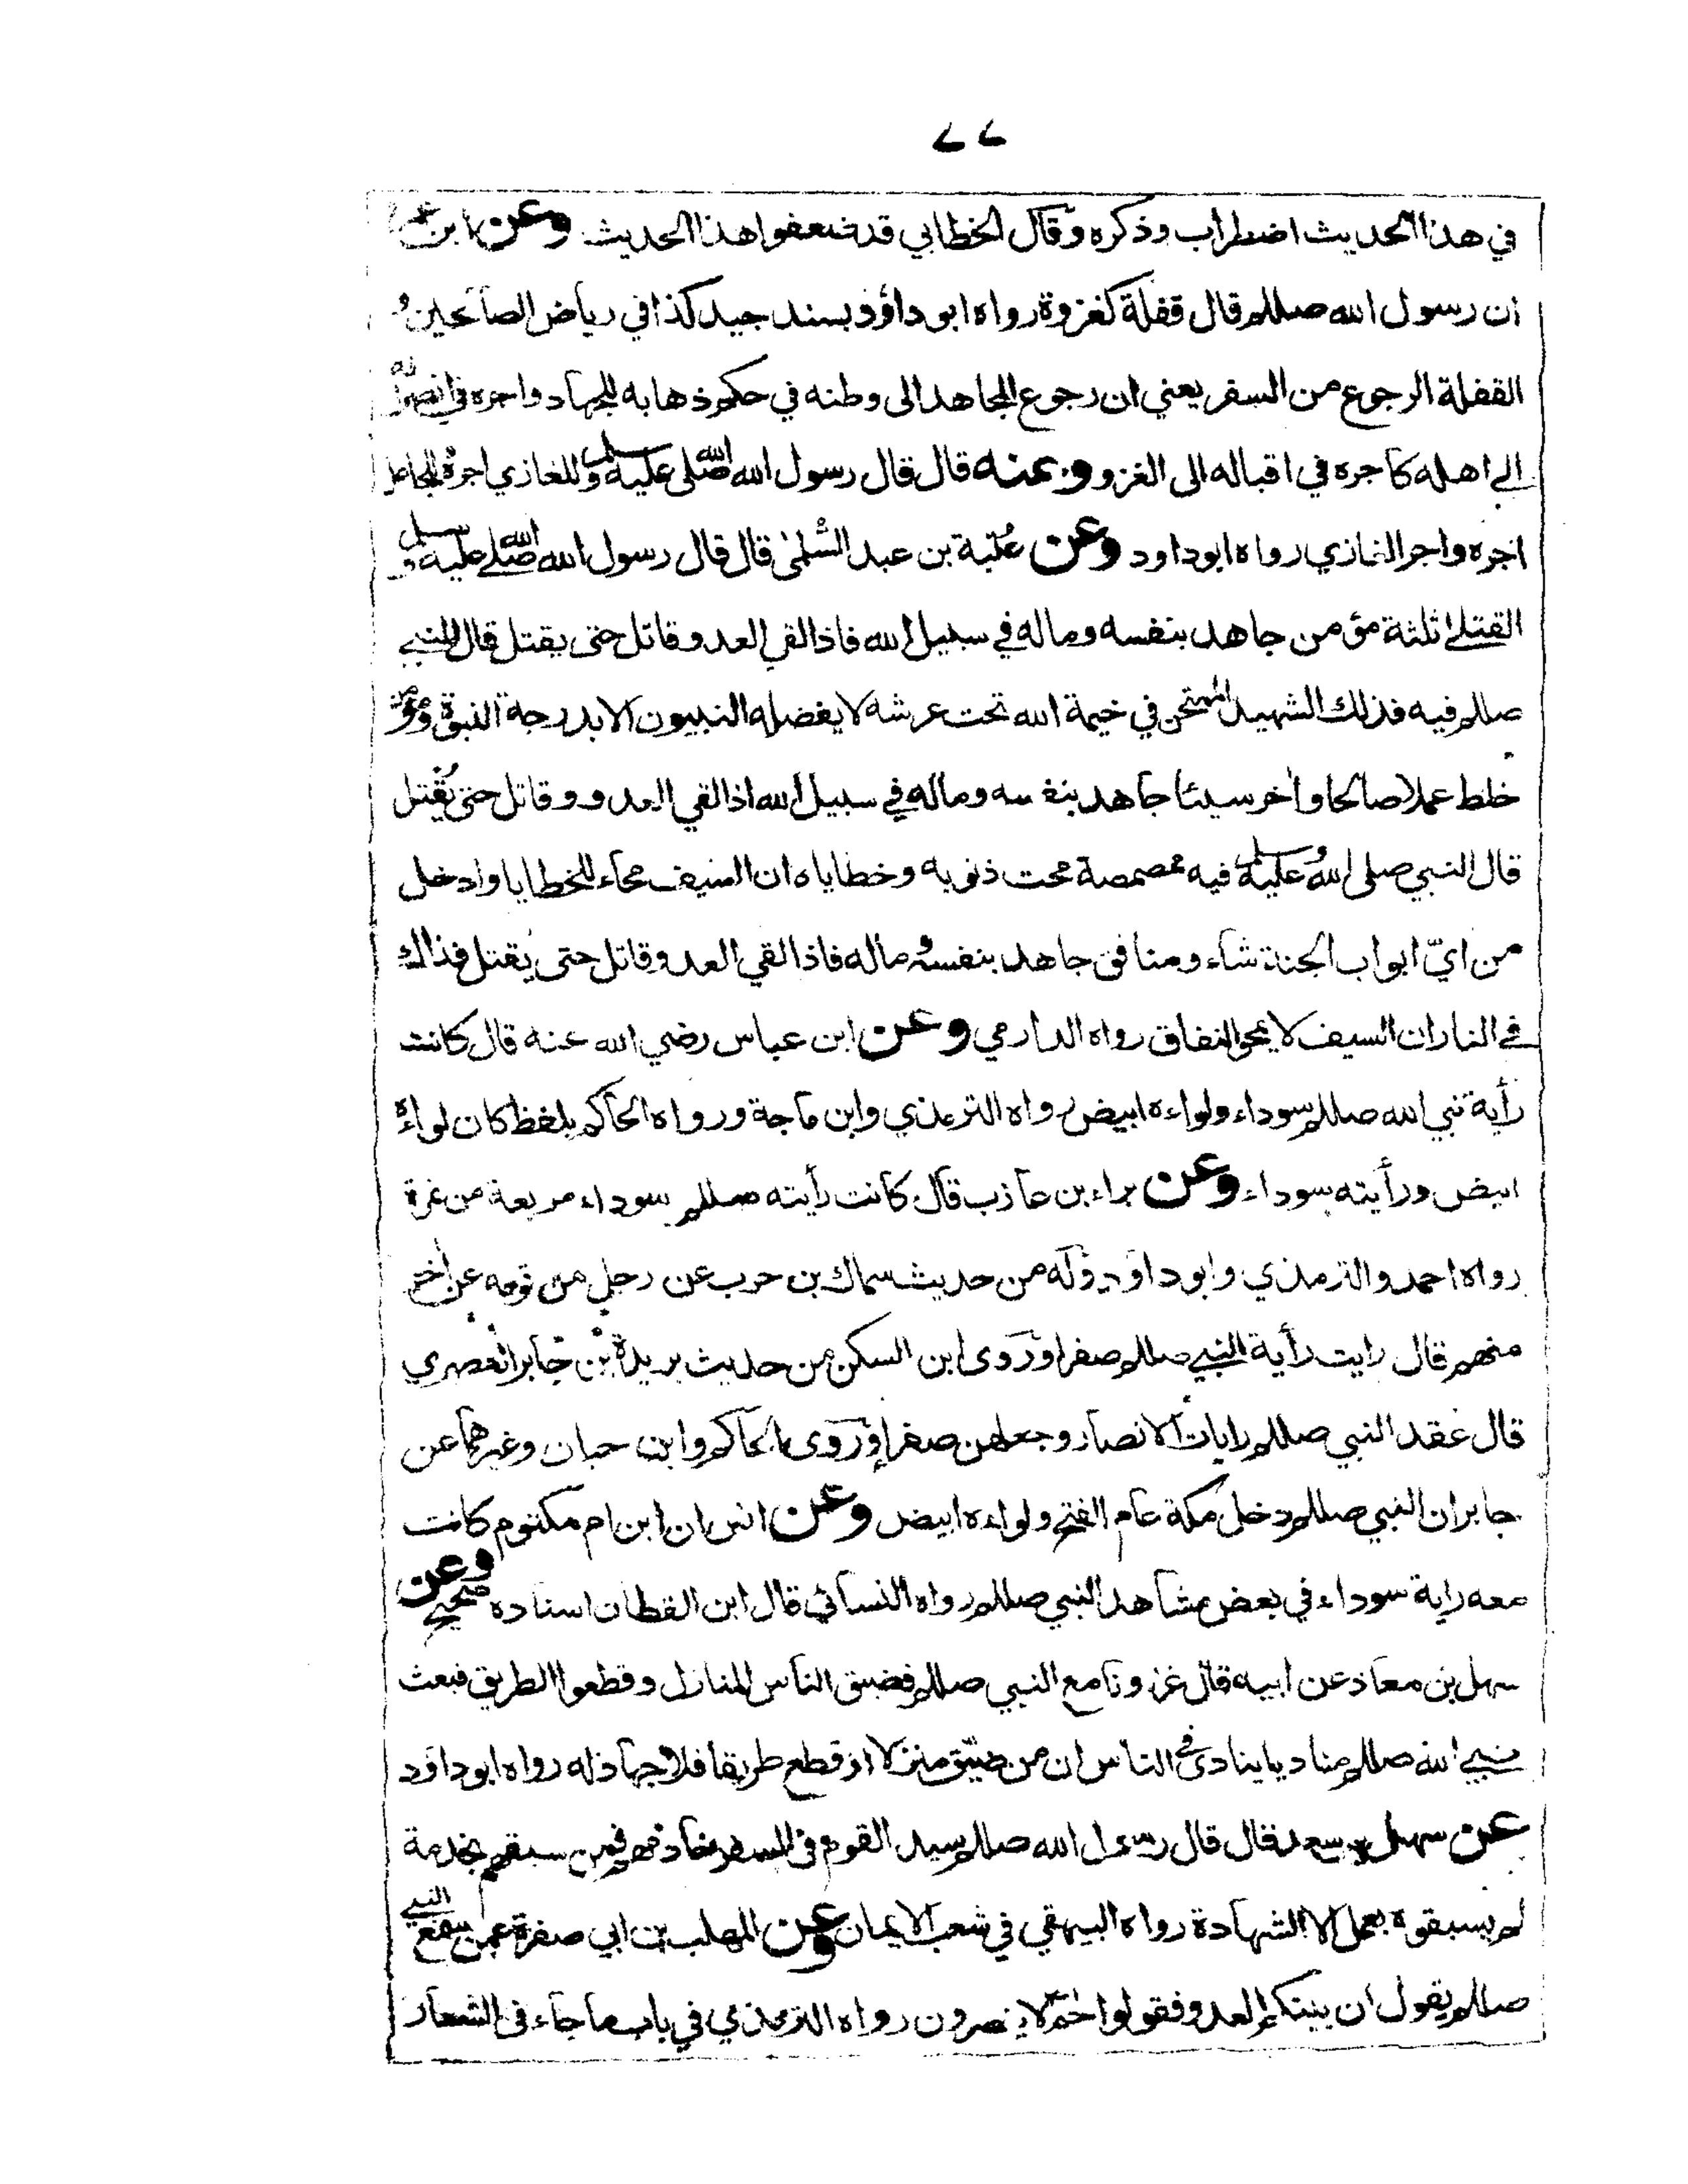 ٢٢
في هذا الحديث اضطراب وذكره وقال الخطابي قد ضعفوا هذا الحديث وعن ابن
ان رسول الله صللم قال قفلة كغزوة رواه ابو داؤد بسند جيد كذا في رياض الصالحين و
القفلة الرجوع من السفر يعني ان رجوع المجاهد الى وطنه في حكم ذهابه للجهاد واجره في انصرافه
الى اهله كاجره في اقباله الى الغزو وعنه قال قال رسول الله صلى الله عليه وسلم للغازي اجره وللجاعل
اجره واجر الغازي رواه ابو داود وعن عتبة بن عبد السلمي قال قال رسول الله صلى الله عليه وسلم
القتلى ثلثة مؤمن جاهد بنفسه وماله في سبيل الله فاذا لقي العدو قاتل حتى يقتل قال النبي
صللم فيه فذلك الشهيد الممتحن في خيمة الله تحت عرشه لا يفضله النبيون الا بدرجة النبوة ومؤمن
خلط عملا صالحا واخر سيئا جاهد بنفسه وماله في سبيل الله اذا لقي العدو وقاتل حتى يقتل
قال النبي صلى الله عليه وسلم فيه ممصمصة محت ذنوبه وخطاياه ان السيف محاء للخطايا وادخل
من ايّ ابواب الجنة شاء ومنافق جاهد بنفسه وماله فاذا لقي العدو قاتل حتى يقتل فذاك
في النار ان السيف لا يمحو النفاق رواه الدارمي وعن ابن عباس رضي الله عنه قال كانت
رأية نبي الله صللم سوداء ولواءه ابيض رواه الترمذي وابن ماجة ورواه الحاكم بلفظ كان لواءه
ابيض ورأيته سوداء وعن براء بن عازب قال كانت رأيته صللم سوداء مربعة من نمرة
رواه احمد والترمذي وابو داؤد وله من حديث سماك بن حرب عن رجل من قومه عن اخر
منهم قال رايت رأية النبي صللم صفرا وروى ابن السكن من حديث بريدة بن جابر العصري
قال عقد النبي صللم رايات الانصار وجعلهن صفرا وروى الحاكم وابن حبان وغيرهما عن
جابر ان النبي صللم دخل مكة عام الفتح ولواءه ابيض وعن انس ان ابن ام مكتوم كانت
معه راية سوداء في بعض مشاهد النبي صللم رواه النسائي قال ابن القطان اسناده صحيح وعن
سهل بن معاذ عن ابيه قال غزونا مع النبي صللم فضيق الناس المنازل وقطعوا الطريق فبعث
نبي الله صللم مناديا ينادى في الناس ان من ضيّق منزلا او قطع طريقا فلا جهاد له رواه ابو داؤد
عن سهل بن سعد قال قال رسول الله صللم سيد القوم في السفر خادمهم فمن سبقهم بخدمة
لم يسبقوه بعمل الا الشهادة رواه البيهقي في شعب الايمان وعن المهلب بن ابي صفرة عمن سمع النبي
صللم يقول ان بيتكم العدو فقولوا حٰم لا ينصرون رواه الترمذي في باب ما جاء في الشعار